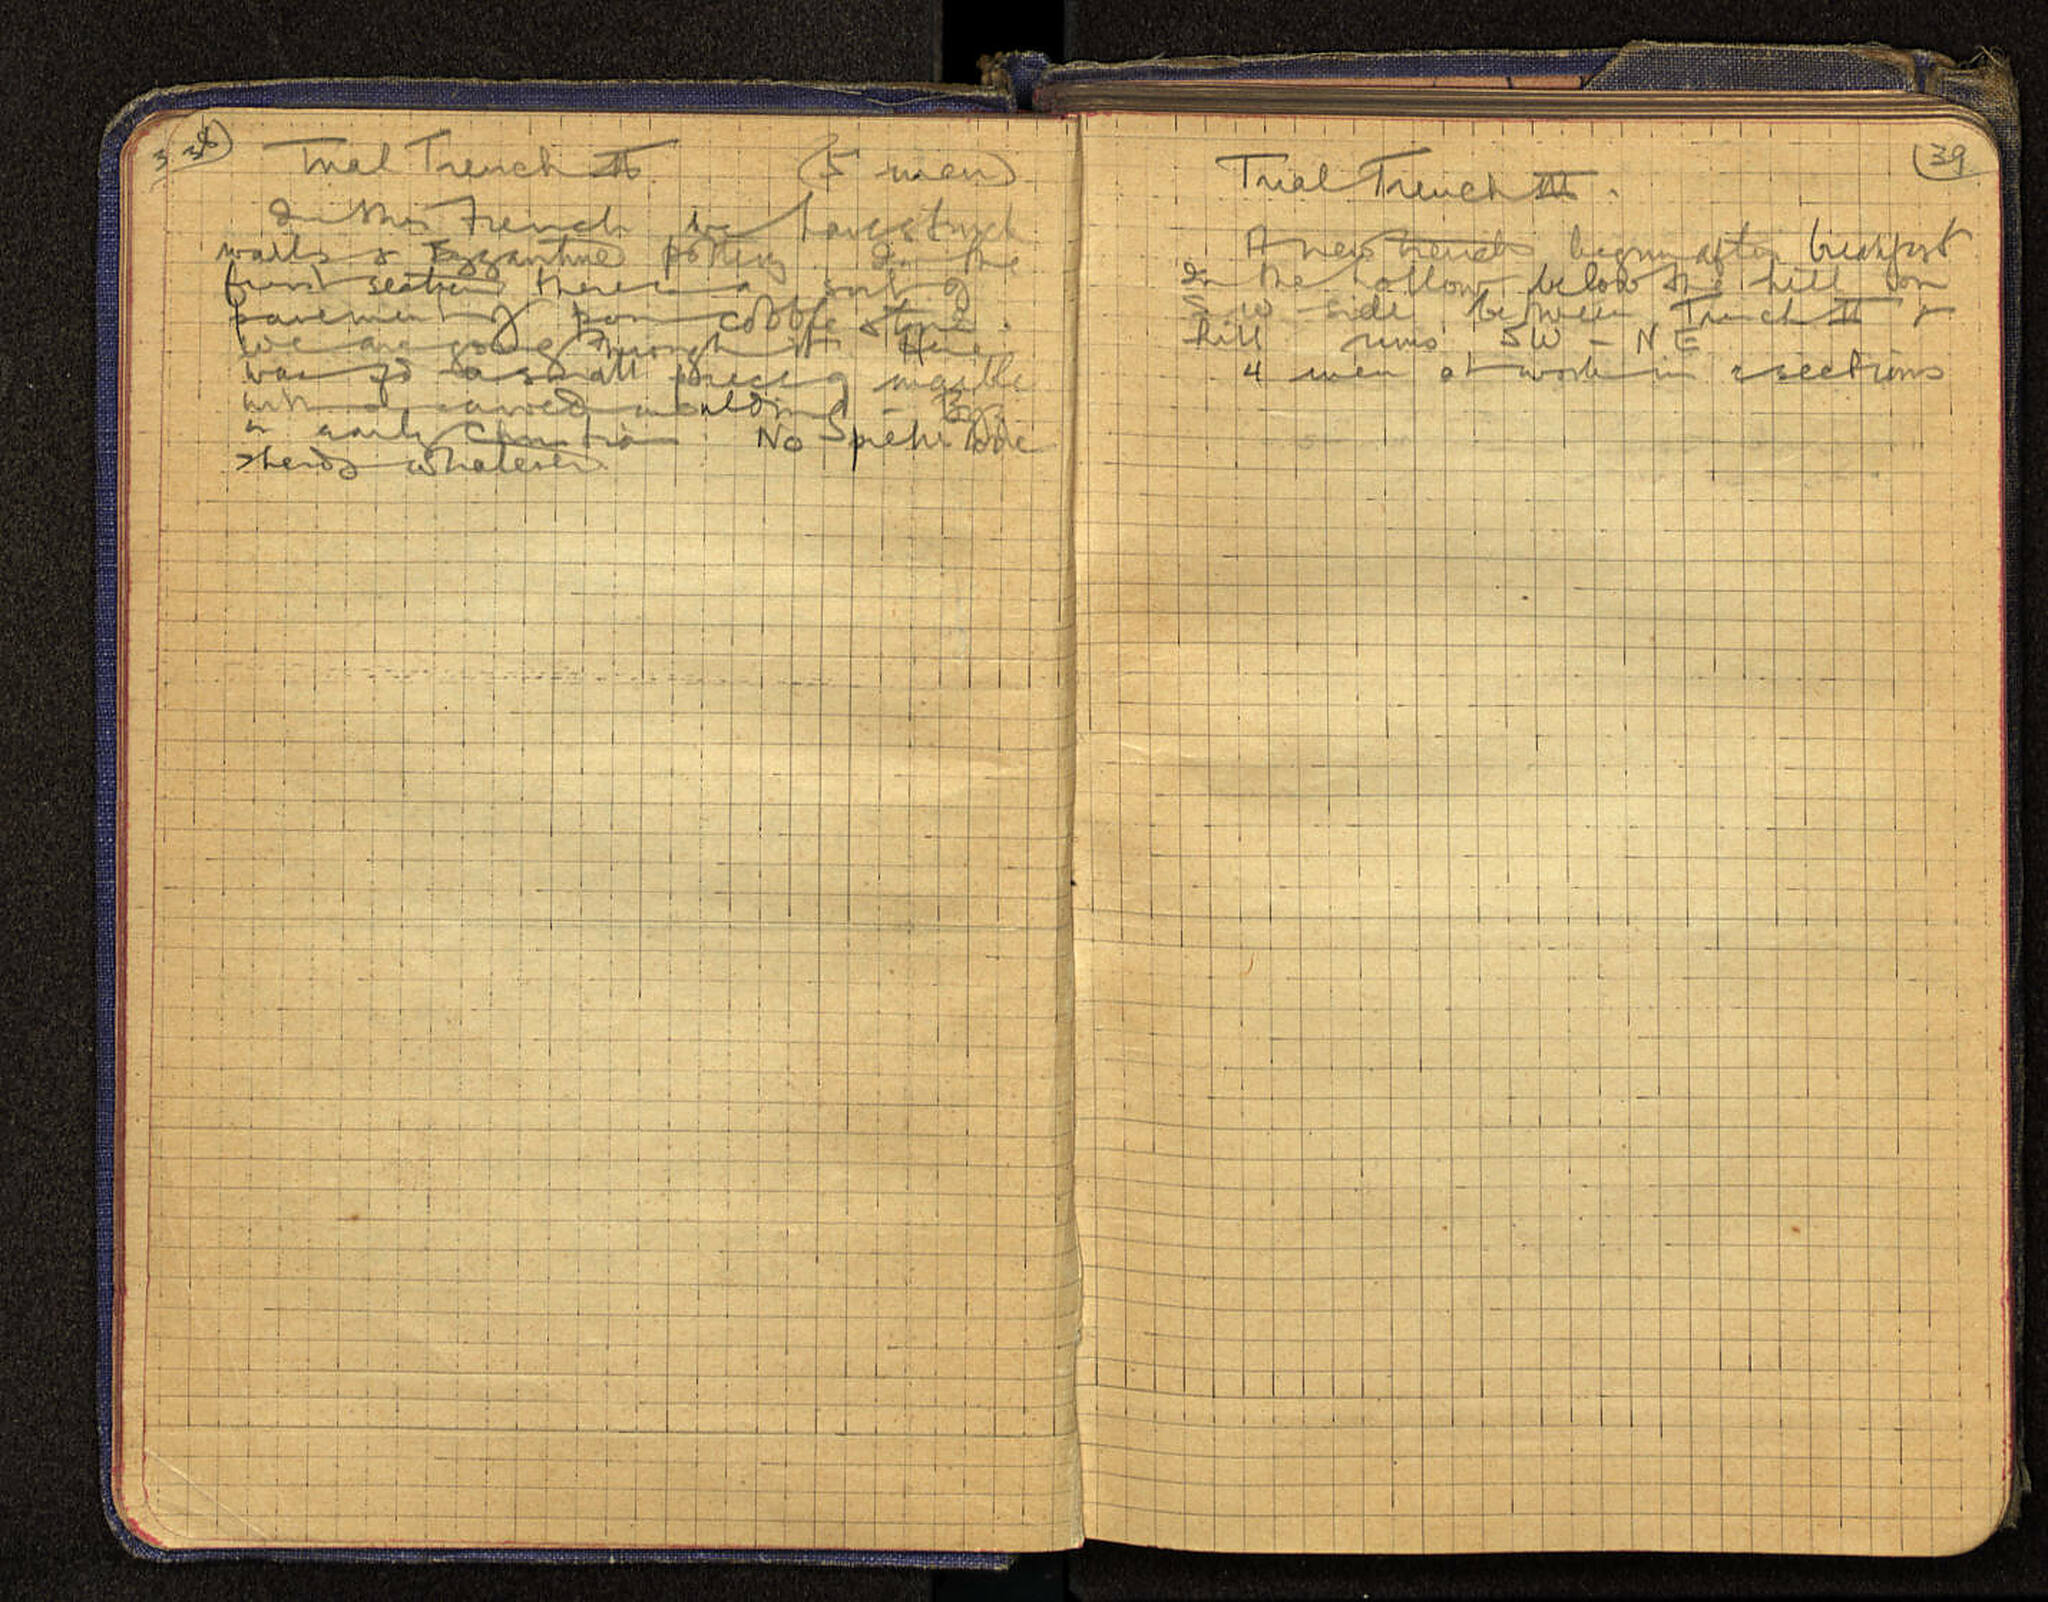 38
Trial Trench II (5 men)
In this trench we have struck
walls & Byzantine pottery. In the
first section there is a sort of
pavement of poor cobble stone.
We are going through it. Here
was fd a small piece of marble
with a carved moulding - Byz
or early Christian. No prehistoric
sherds whatever
39
Trial Trench III.
A new trench begun after breakfast
In the hollow below the hill on
S W side between Trench II &
hill runs SW - NE
4 men at work in sections